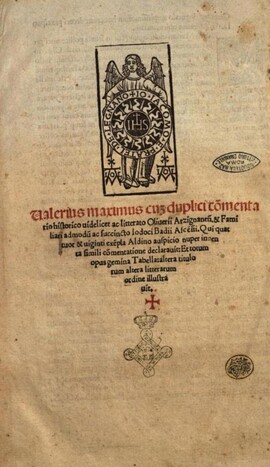 DA LEGNANO · IO · IACOBO · E · FRAT
IHS
Ualerius maximus cuȝ duplici cōmenta
rio historico uidelicet ac litterato Oliuerii Arzignanēn̄, & Fami
liari admodū ac succincto Iodoci Badii Ascēsii. Qui quat
tuor & uiginti exēpla Aldino auspicio nuper inuen
ta simili cōmentatione declarauit: Et totum
opus gemina Tabella: altera titulo
rum altera literarum
ordine illustra
uit.